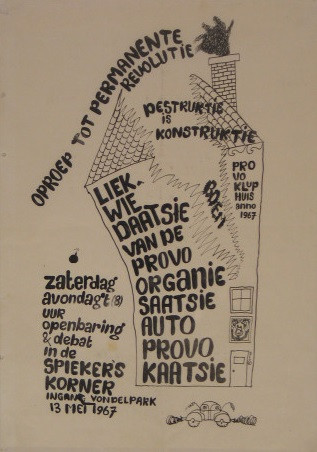 OPROEP TOT PERMANENTE
REVOLUTIE
DESTRUKTIE
IS
KONSTRUKTIE
PRO
VO KLUP
HUIS
anno
1967
LIEK.
WIE
DAATSIE
VAN DE
PROVO
ORGANIE
SAATSIE
AUTO
PROVO
KAATSIE
zaterdag
avond 8t (8)
UUR
openbaring
& debat
in de
SPIEKER'S
KORNER
INGANG VONDELPARK
13 MEI 1967